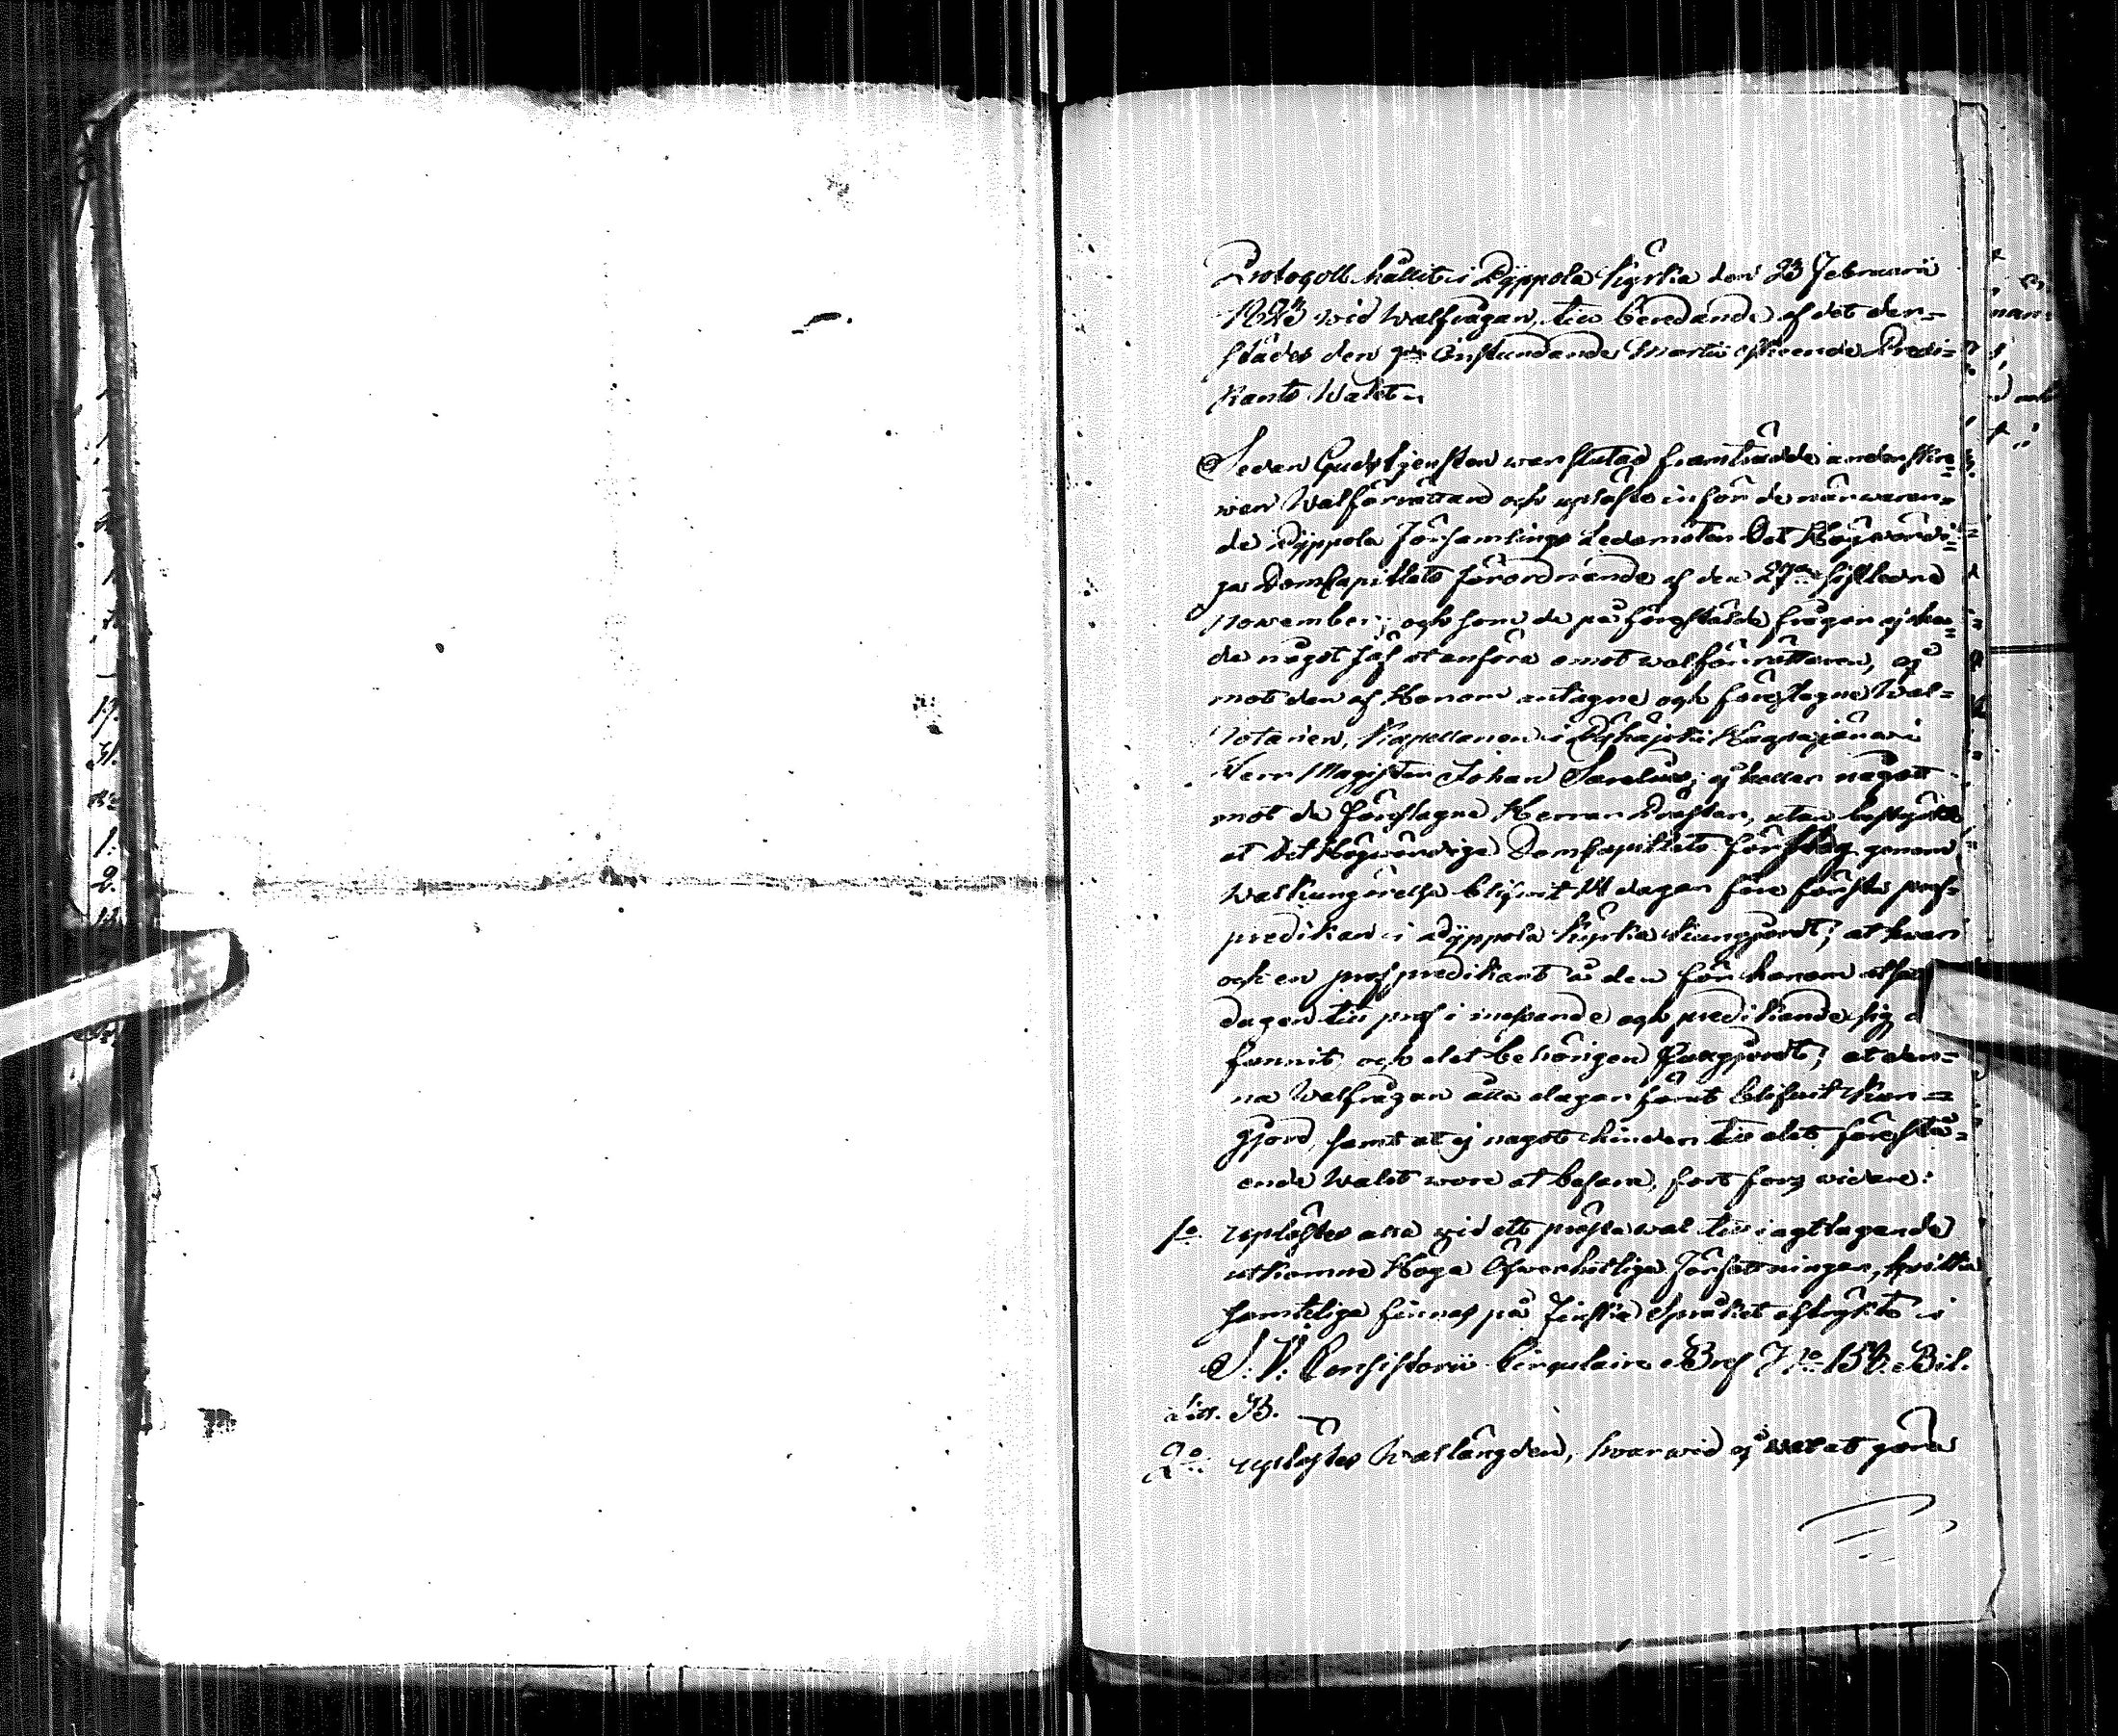 Protogoll hållit i Pyppola Kyrka den 23 Februarii
1823 wid walfrågan, till beredande af det der=
städes den 9de instundande Martii skeende Predi=
kants Walet.
Sedan Gudstjensten war slutad framträdde underskre=
wen Walförrättare och upläste inför de närwaran=
de Pyppola Församlings Ledamöter Det Högwördi=
ga DomCapitlets förordnande af den 27de sistledne
November; och som de på föreställde frågor ej ha=
de något jäf at anföra emot walförrättaren, ej
mot den af Honom antagne och föreslagne Wal=
Notarien, Kapellanen i Pyhäjoki Haapajärwi
Herr Magister Johan Snellman; ej heller något
mot de föreslagne Herrar Prester, utan bestyrkte
at Det Högwördiga DomCapitlets förslag genom
Walkungörelse blifwit 14 dagar före första prof=
predikan i Pyppola Kyrka kungjordt; at hwar
och en profpredikant å den för honom
dagen till prof i messande och predikande sig
funnit, och det behörigen fungjordt; at den=
na Walfrågan åtta dagar förut blifwit kun=
gjord, samt at ej något hinder till det förestå=
ende Walet wore at befara, fort fors widare:
1o uplästes alla wid ett prestawal till iagttagande
utkomne Höga Öfwerhetliga Författningar, hwilka
samtelige finnas på Finska Språket aftrykte i
S. V. Consistorii Cirqulaire Bref No 158. Bil.
Litt. B.
2o uplästes Wallängden, hwarwid ej war at göra